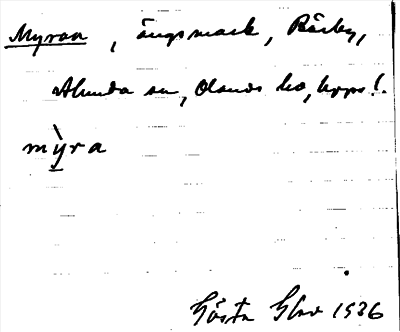 Myran, ängsmark, Råsby,
Alunda sn, Olands hd, Upps l.
mỳra
Gösta 1936